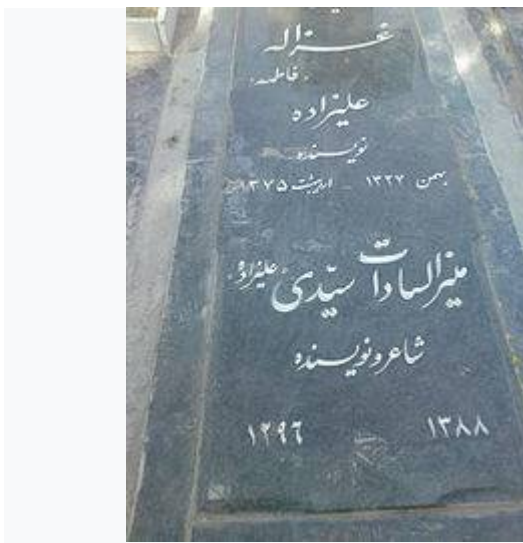 غزاله
«فاطمه»
علیزاده
نویسنده
بهمن ۱۳۲۷ - اردیبهشت ۱۳۷۵
منیرالسادات سیّدی «علیزاده»
شاعر و نویسنده
۱۲۹۶ ۱۳۸۸